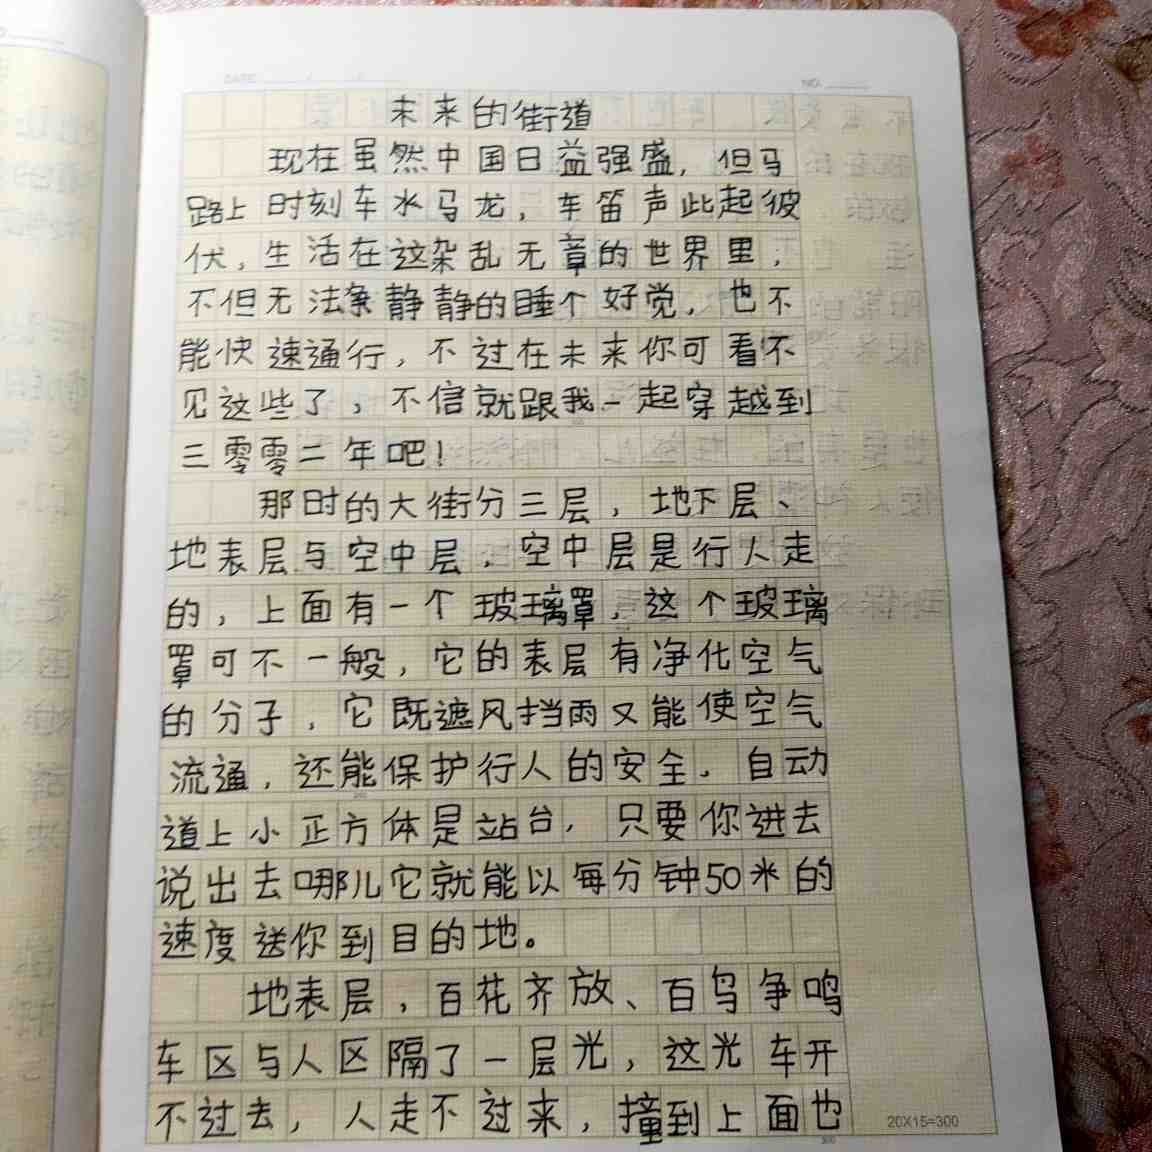 DATE
NO.
未来的街道
现在虽然中国日益强盛，但马
路上时刻车水马龙，车笛声此起彼
伏，生活在这杂乱无章的世界里，
不但无法静静的睡个好觉，也不
能快速通行，不过在未来你可看不
见这些了，不信就跟我一起穿越到
三零零二年吧！
那时的大街分三层，地下层、
地表层与空中层，空中层是行人走
的，上面有一个玻璃罩，这个玻璃
罩可不一般，它的表层有净化空气
的分子，它既遮风挡雨又能使空气
流通，还能保护行人的安全。自动
道上小正方体是站台，只要你进去
说出去哪儿它就能以每分钟50米的
速度送你到目的地。
地表层，百花齐放、百鸟争鸣
车区与人区隔了一层光，这光车开
不过去，人走不过来，撞到上面也
20X15=300
300